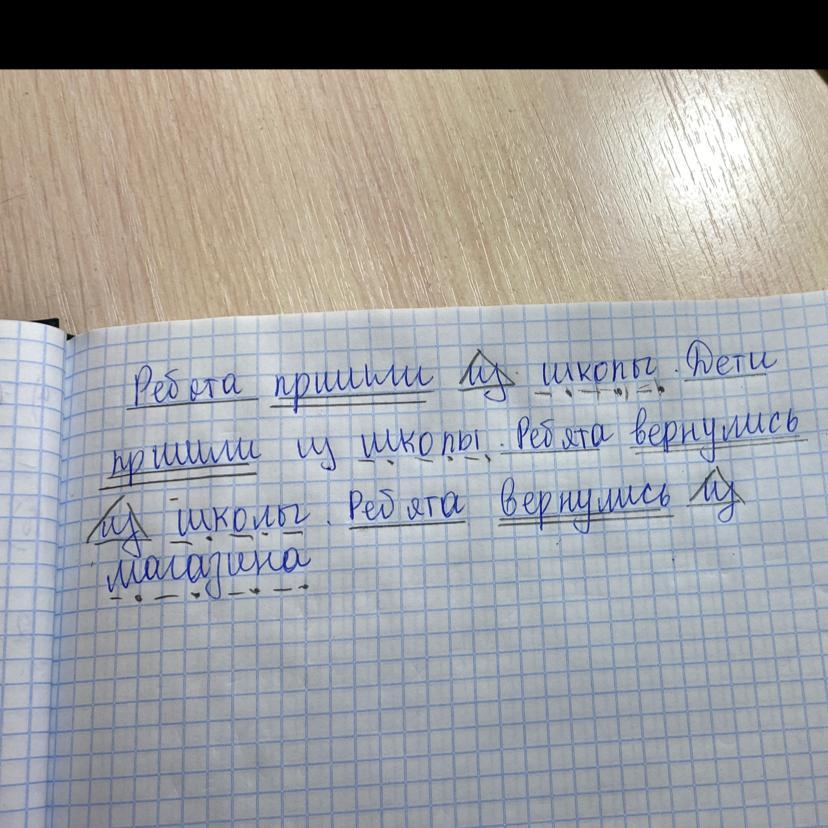 Ребята пришли из школы. Дети
пришли из школы. Ребята вернулись
из школы. Ребята вернулись из
магазина